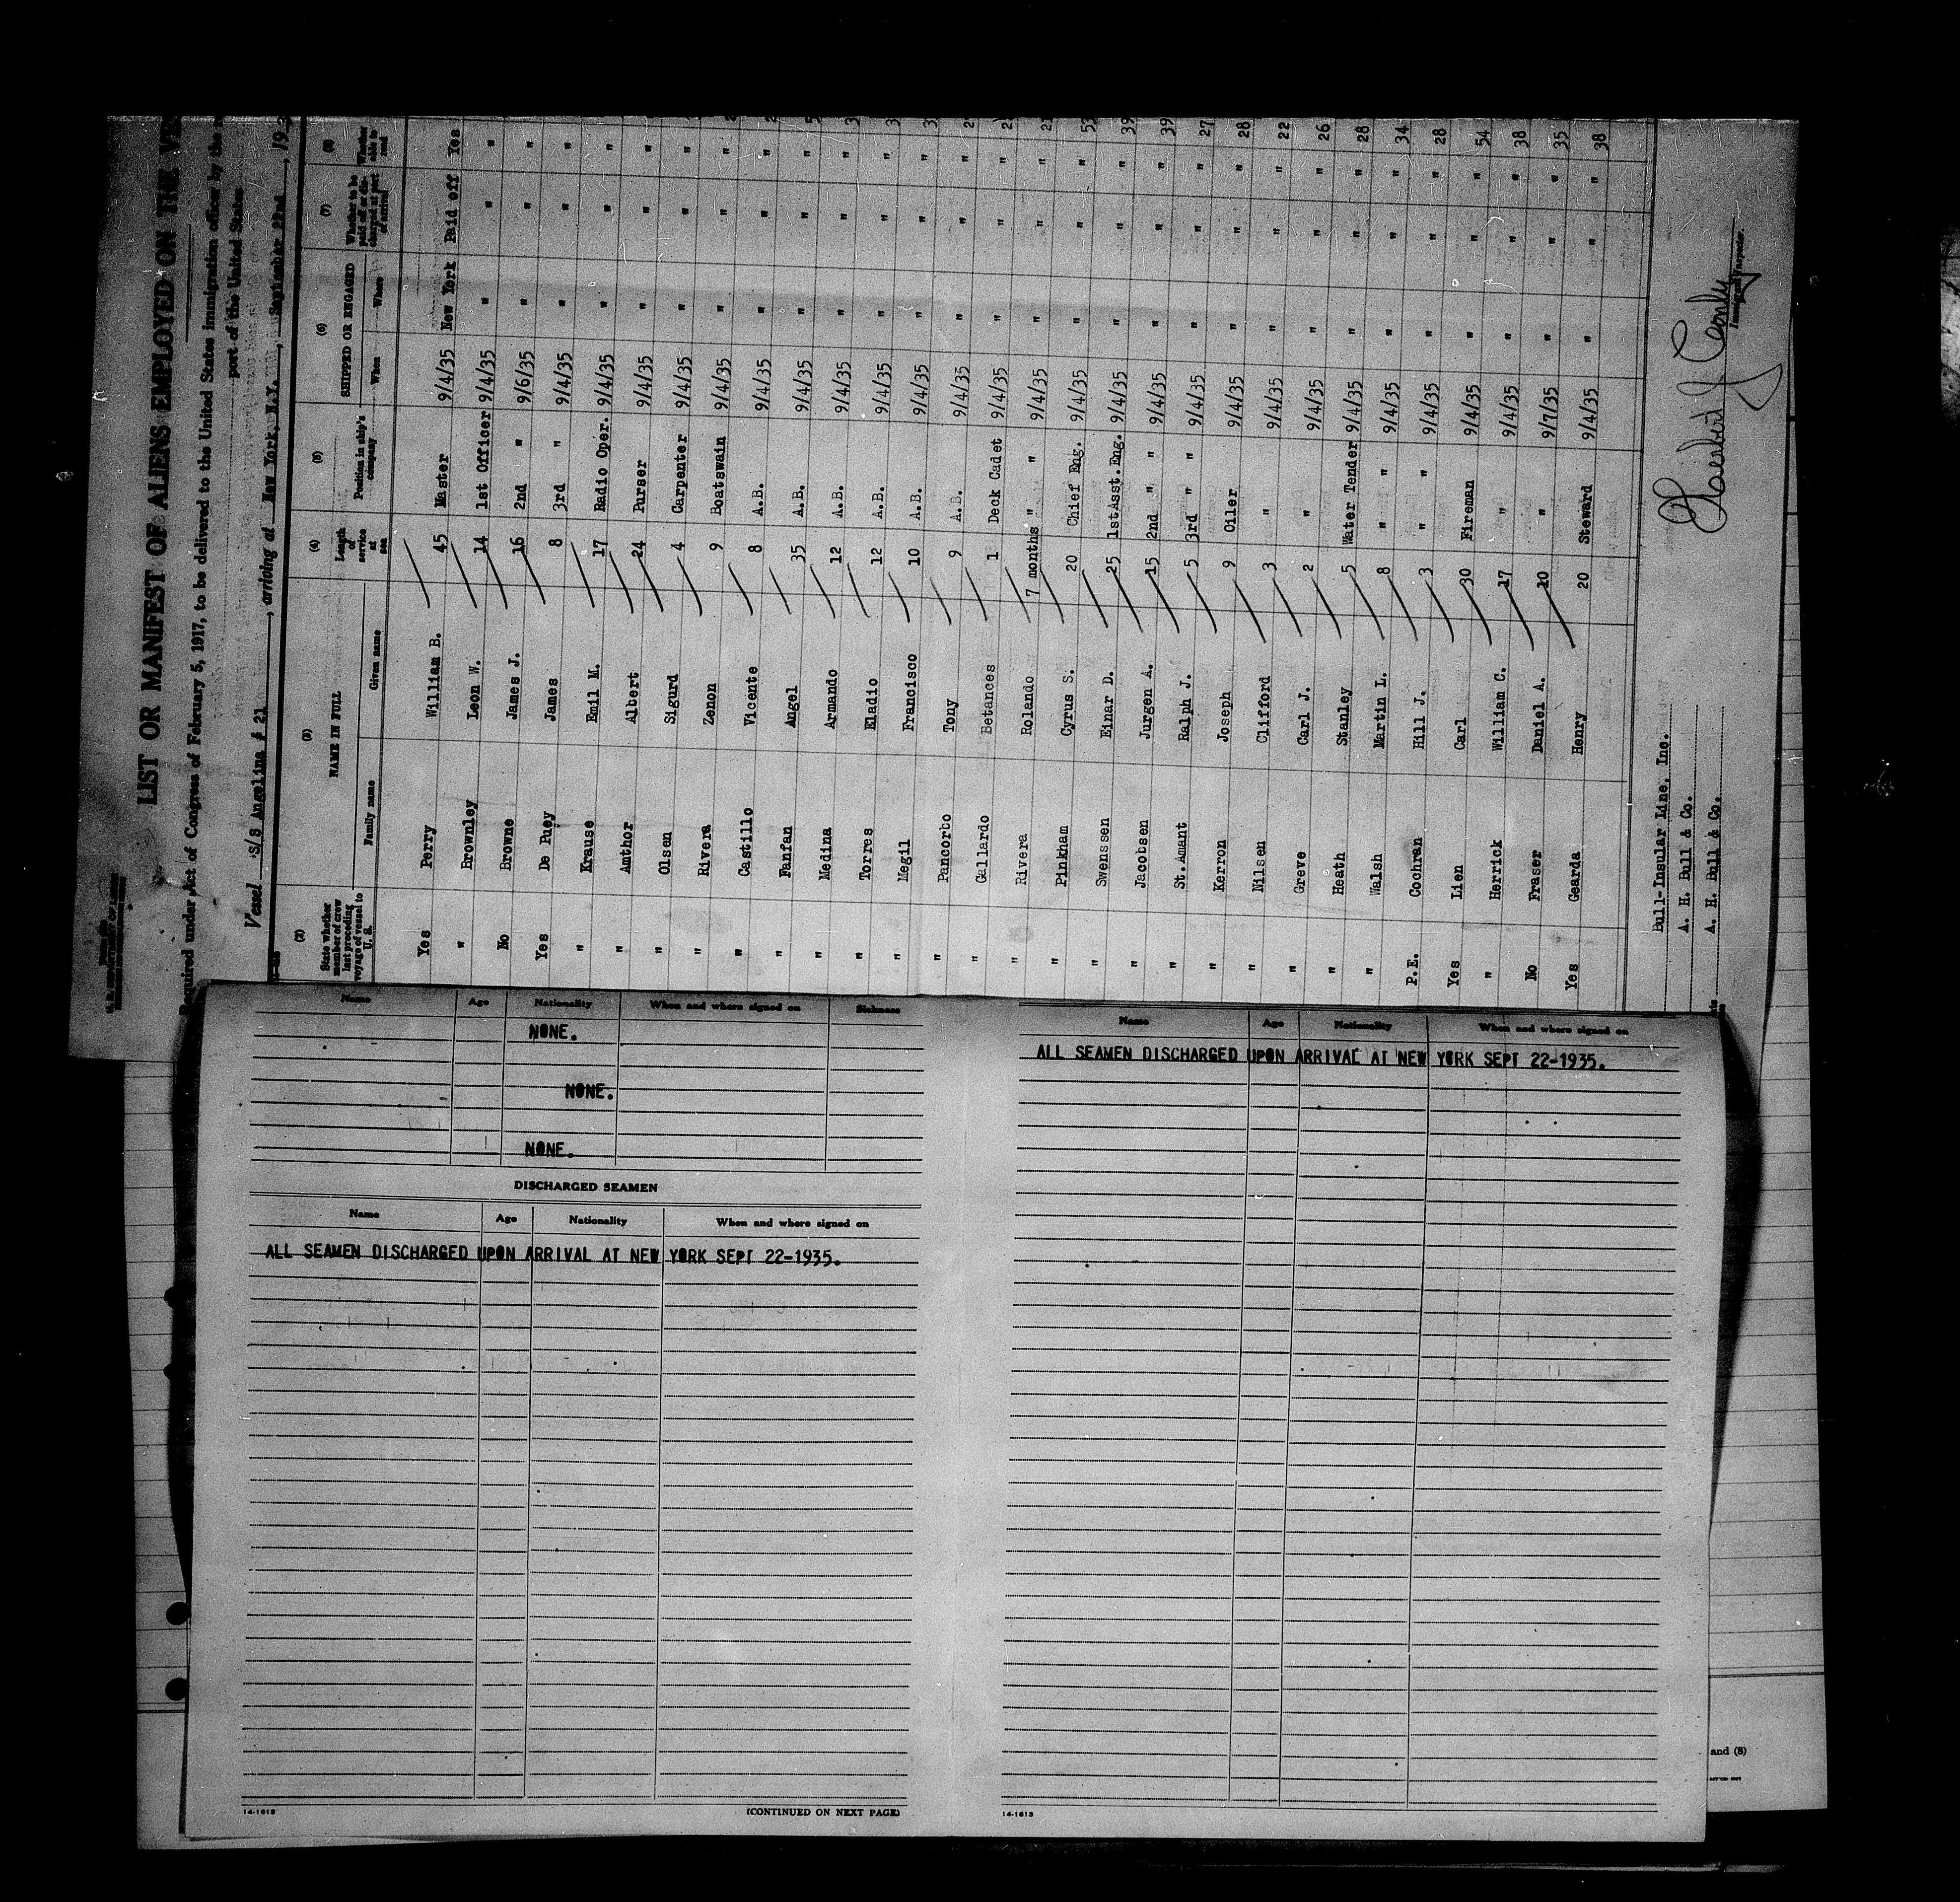 LIST OR MANIFEST OF ALIENS EMPLOYED ON THE
Required under Act of Congress of February 5, 1917, to be delivered to the United States immigration officer by the
port of the United States
Vessel S/S Angelina # 21, arriving at New York, N.Y., September 22nd, 19
(2) (3) (4) (5) (6) (7) (8)
State whether member of crew last preceding voyage of vessel to U. S. NAME IN FULL Family name Given name Length of service at sea Position in ship's company SHIPPED OR ENGAGED When Where Whether to be paid off or discharged at port of arrival Whether able to read
Yes Perry William B. 45 Master 9/4/35 New York Paid off Yes
" Brownley Leon W. 14 1st Officer 9/4/35 " " "
No Browne James J. 16 2nd " 9/6/35 " " "
Yes De Puey James 8 3rd " 9/4/35 " " "
" Krause Emil M. 17 Radio Oper. 9/4/35 " " "
" Amthor Albert 24 Purser 9/4/35 " " "
" Olsen Sigurd 4 Carpenter 9/4/35 " " "
" Rivera Zenon 9 Boatswain 9/4/35 " " "
" Castillo Vicente 8 A.B. 9/4/35 " " "
" Fanfan Angel 35 A.B. 9/4/35 " " "
" Medina Armando 12 A.B. 9/4/35 " " "
" Torres Eladio 12 A.B. 9/4/35 " " "
" Megil Francisco 10 A.B. 9/4/35 " " "
" Pancorbo Tony 9 A.B. 9/4/35 " " "
" Gallardo Betances 1 Deck Cadet 9/4/35 " " "
" Rivera Rolando 7 months " " 9/4/35 " " "
" Pinkham Cyrus S. 20 Chief Eng. 9/4/35 " " " 53
" Swenssen Einar D. 25 1stAsst.Eng. 9/4/35 " " " 39
" Jacobsen Jurgen A. 15 2nd " " 9/4/35 " " " 39
" St.Amant Ralph J. 5 3rd " " 9/4/35 " " " 27
" Kerron Joseph 9 Oiler 9/4/35 " " " 28
" Nilsen Clifford 3 " 9/4/35 " " " 22
" Greve Carl J. 2 " 9/4/35 " " " 26
" Heath Stanley 5 Water Tender 9/4/35 " " " 28
" Walsh Martin L. 8 " " 9/4/35 " " " 34
P.E. Cochran Hill J. 3 " " 9/4/35 " " " 28
Yes Lien Carl 30 Fireman 9/4/35 " " " 54
" Herrick William C. 17 " 9/4/35 " " " 38
No Fraser Daniel A. 10 " 9/7/35 " " " 35
Yes Gearda Henry 20 Steward 9/4/35 " " " 38
Bull-Insular Line, Inc.
A. H. Bull & Co.
A. H. Bull & Co.
Immigrant Inspector.
Name Age Nationality When and where signed on Sickness
NONE.
NONE.
NONE.
DISCHARGED SEAMEN
Name Age Nationality When and where signed on
ALL SEAMEN DISCHARGED UPON ARRIVAL AT NEW YORK SEPT 22-1935.
14-1613 (CONTINUED ON NEXT PAGE)
Name Age Nationality When and where signed on
ALL SEAMEN DISCHARGED UPON ARRIVAL AT NEW YORK SEPT 22-1935.
14-1613
and (8)